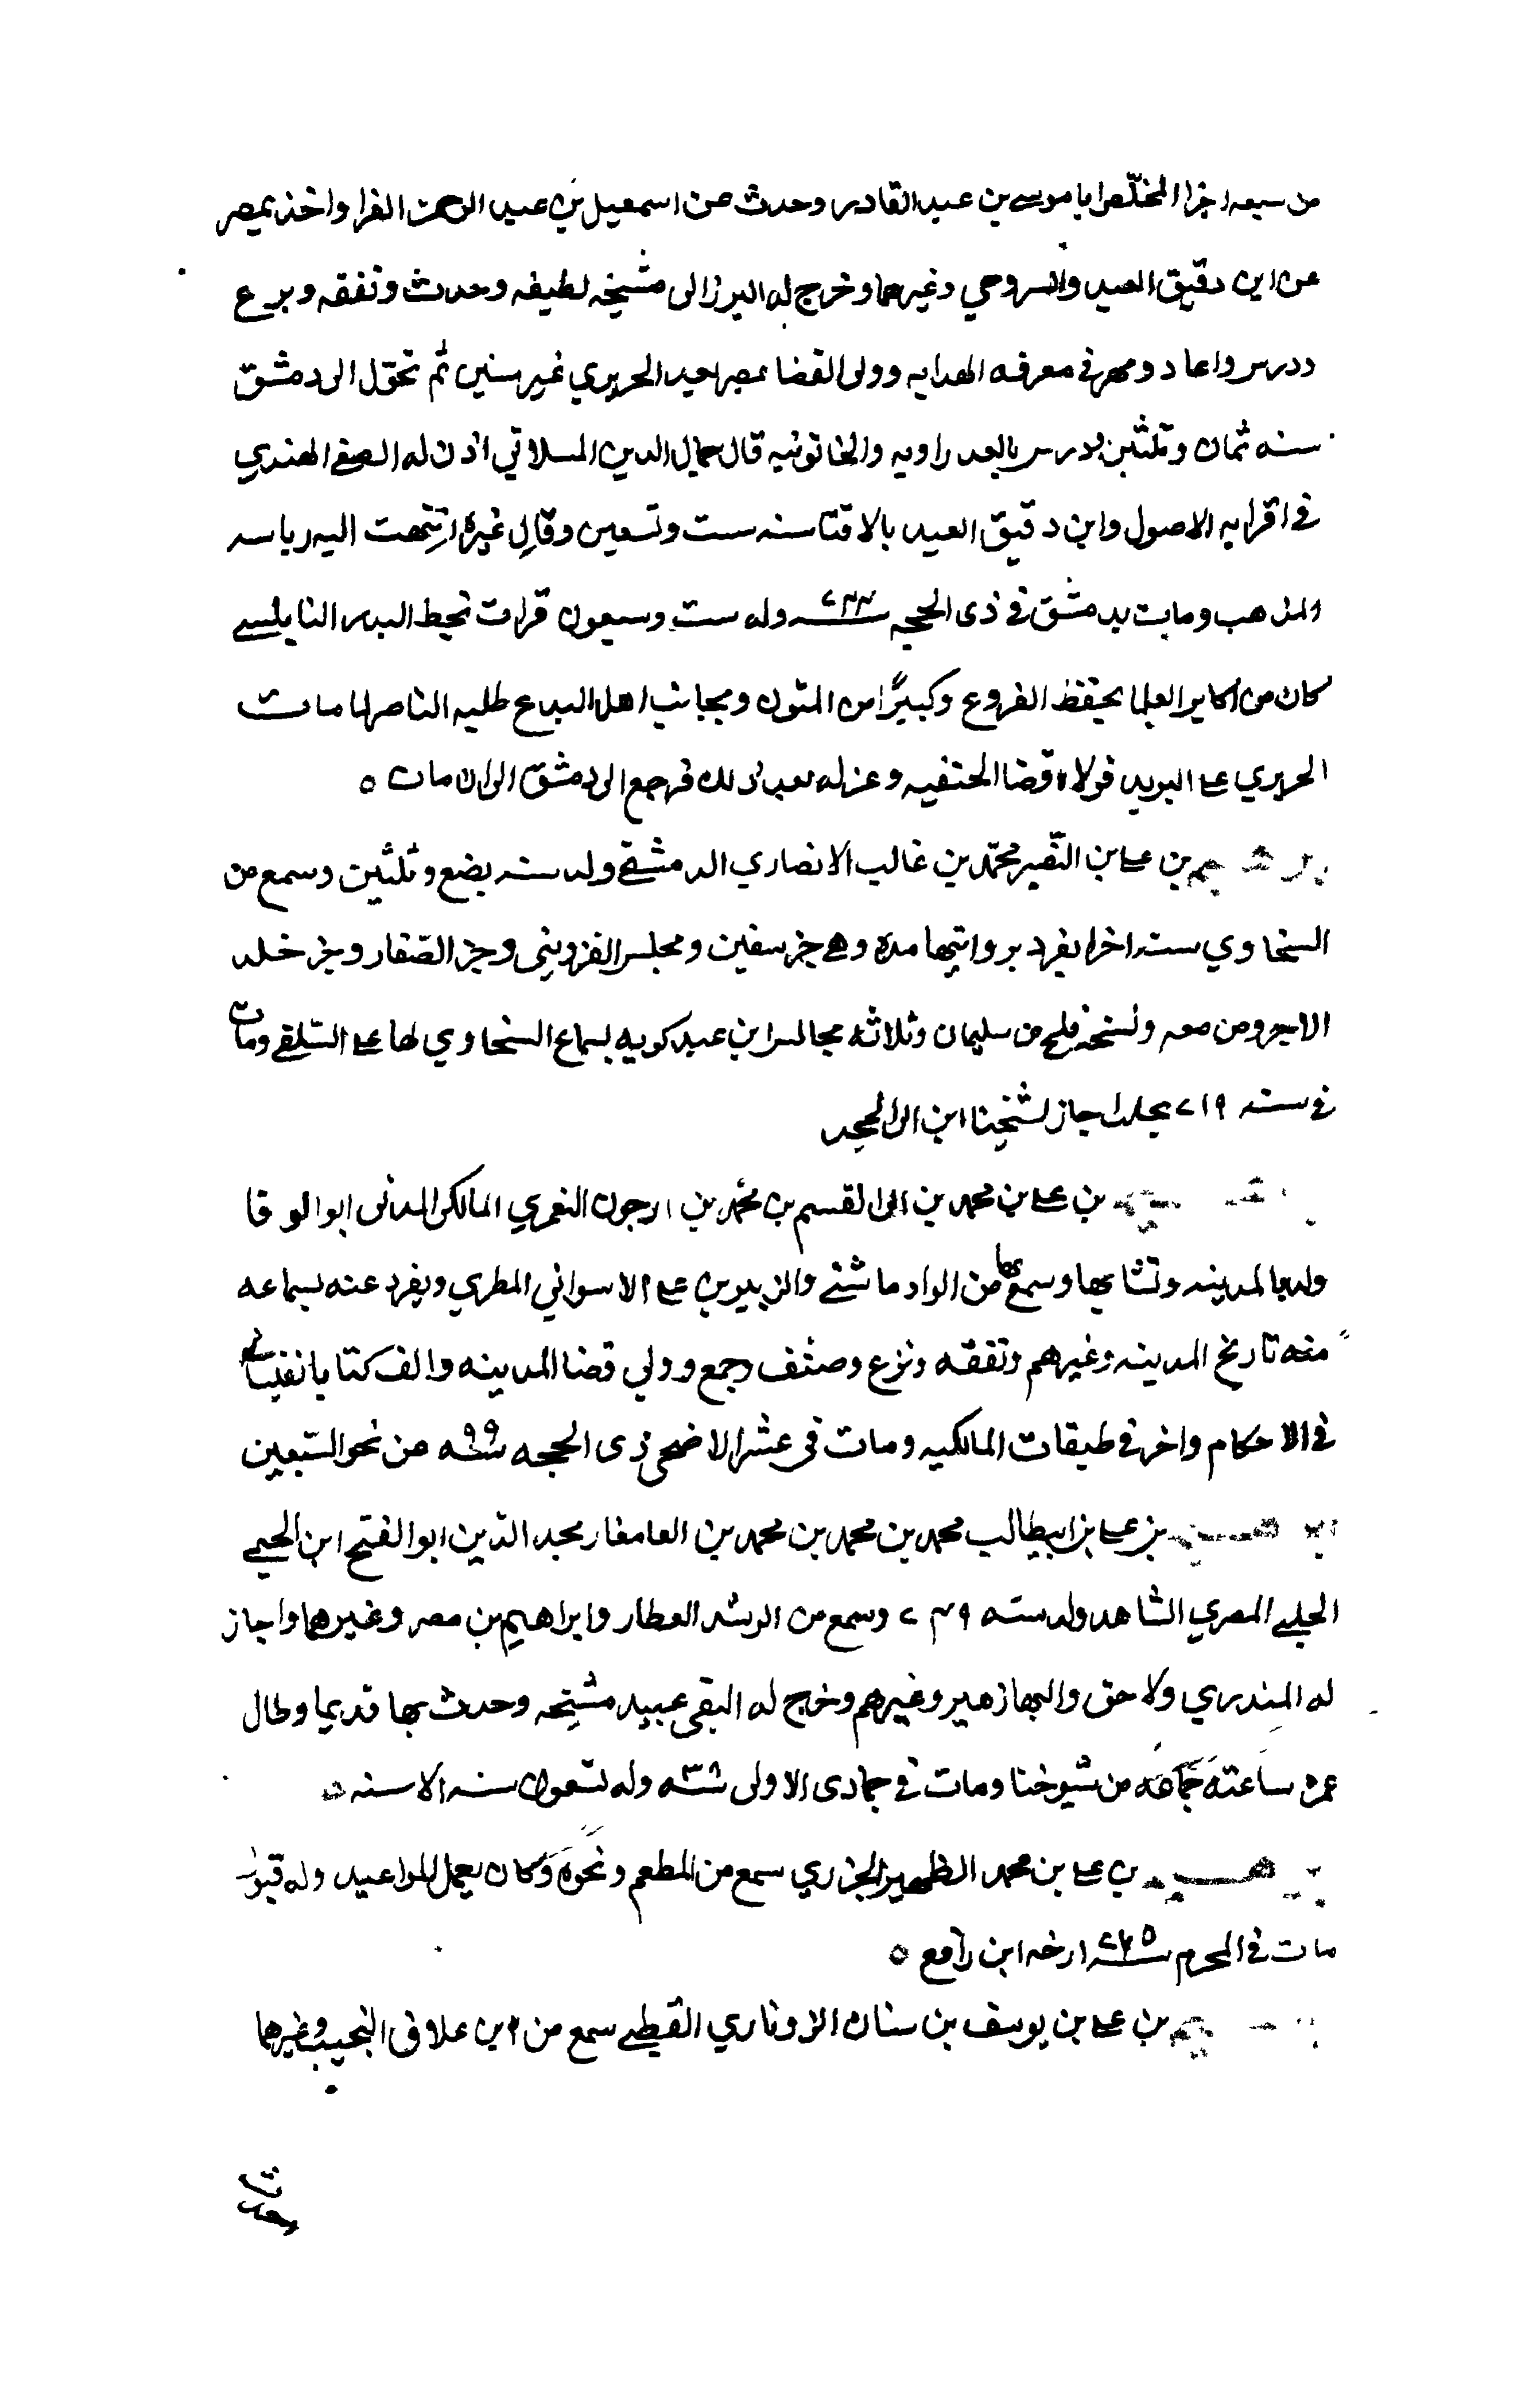 من سبعه اجزا المخلّص ابا موسى بن عبد القادر وحدث عن اسمعيل بن عبد الرحمن الفرا واخذ بمصر
عن ابن دقيق العيد والسروجي وغيرهما وخرج له البرزالى مشيخه لطيفه وحدث وتفقه وبرع
ودرس واعاد ومهر فى معرفه الهدايه وولى القضا بمصر بعد الحريري غير سنين ثم تحوّل الى دمشق
سنه ثمان وثلثين ودرس بالعدراويه والخاتونيه قال جمال الدين المسلاتي اذن له الصفى الهندي
فى اقرايه الاصول وابن دقيق العيد بالافتا سنه ست وتسعين وقال غيره انتهت اليه رياسه
المذهب ومات بدمشق فى ذى الحجه سنه ٧٤٤ وله ست وسبعون قرات بخط البدر النابلسى
كان من اكابر العلما يحفظ الفروع وكبيرًا من المتون ويجانب اهل البدع طلبه الناصر لما مات
الحريري على البريد فولاه قضا الحنفيه وعزله بعد ذلك فرجع الى دمشق الى ان مات ه
بن على بن النّصير محمّد بن غالب الانصاري الدمشقى ولد سنه بضع وثلثين وسمع من
السخاوي سته اجزا يفرد بروايتها مده وهى جز سفين ومجلس القزوينى وجز الصّفار وجز خلد
ومن معه ونسخه فليح من سليمان وثلاثه مجالس ابن عبد كويه بسماع السخاوي لها على السّلفى ومات
فى سنه ٧١٩ اجاز لشيخنا ابن ابى المجد
بن على بن محمد بن ابى القسم بن محمّد بن فرحون اليعمري المالكى المدنى ابو الوفا
ولد بالمدينه ونشا بها وسمع بها من الواد ماشى والزبير بن على الاسوانى المطري ويفرد عنه بسماعه
منه تاريخ المدينه وغيرهم وتفقه وبرع وصنف وجمع وولي قضا المدينه والف كتابا نفيسا
فى الاحكام واخر فى طبقات المالكيه ومات فى عشر الاضحى ذى الحجه سنه ٧٩٩ عن نحو السّبعين
بن على بن ابيطالب محمد بن محمد بن محمد بن مجد الدّين ابو الفتح ابن الحيمى
الحلى المصري الشاهد ولد سنه ٦٤٩ وسمع من الرشد العطار وابراهيم بن مصر وغيرهما واجاز
له المنذري ولاحق والبها زهير وغيرهم وخرج له التقى عبيد مشيخه وحدث بها قديما وطال
عمره جماعه من شيوخنا ومات فى جمادى الاولى سنه ٧٣٨ وله تسعون سنه الا سنه ه
بن على بن محمد الظهير الجزري سمع من المطعم ونحوه وكان يعمل المواعيد وله قبول
مات فى المحرم سنه ٧٦٥ ارخه ابن رافع ه
بن على بن يوسف بن سنان الزرناري القطبى سمع من ابن علاق النجيب وغيرهما
وحدث